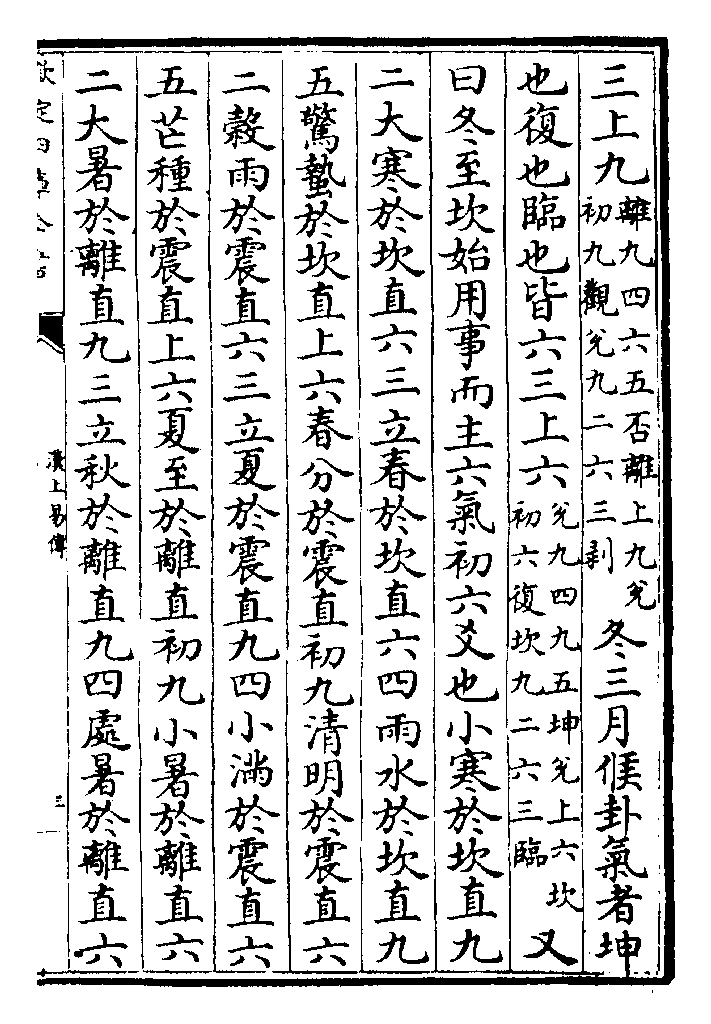 三上九離九四六五否離上九兌初九觀兌九二六三剥冬三月候卦氣者坤
也復也臨也皆六三上六兌九四九五坤兌上六坎初六復坎九二六三臨又
曰冬至坎始用事而主六氣初六爻也小寒於坎直九
二大寒於坎直六三立春於坎直六四雨水於坎直九
五驚蟄於坎直上六春分於震直初九清明於震直六
二榖雨於震直六三立夏於震直九四小滿於震直六
五芒種於震直上六夏至於離直初九小暑於離直六
二大暑於離直九三立秋於離直九四處暑於離直六
欽定四庫全書
漢上易傳
三